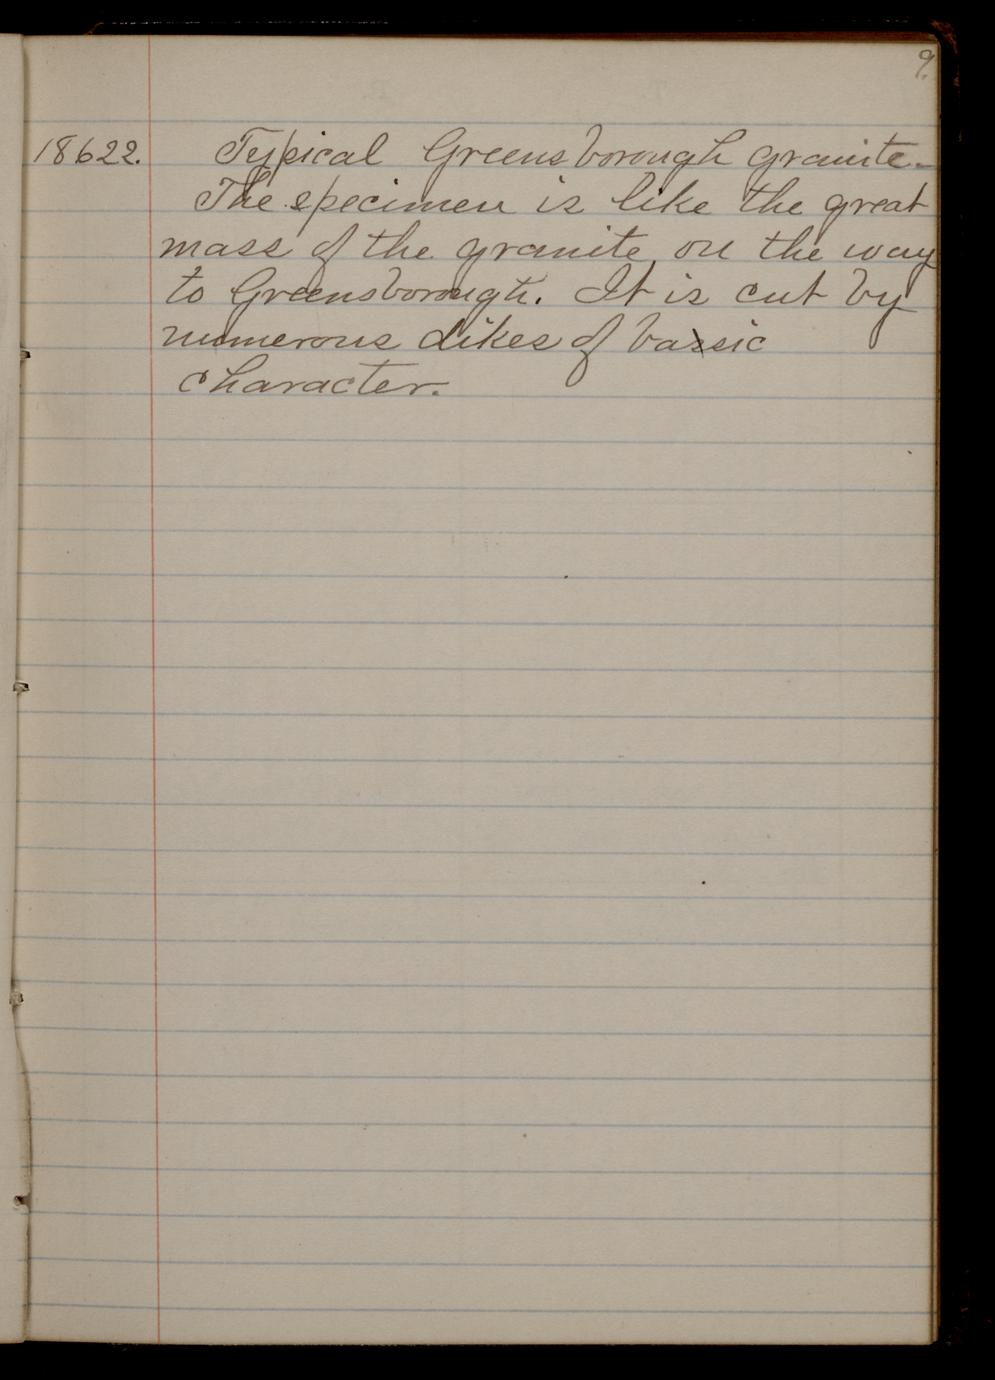 9.
18622. Typical Greensborough granite.
The specimen is like the great
mass of the granite, on the way
to Greensborough. It is cut by
numerous dikes of basic
character.